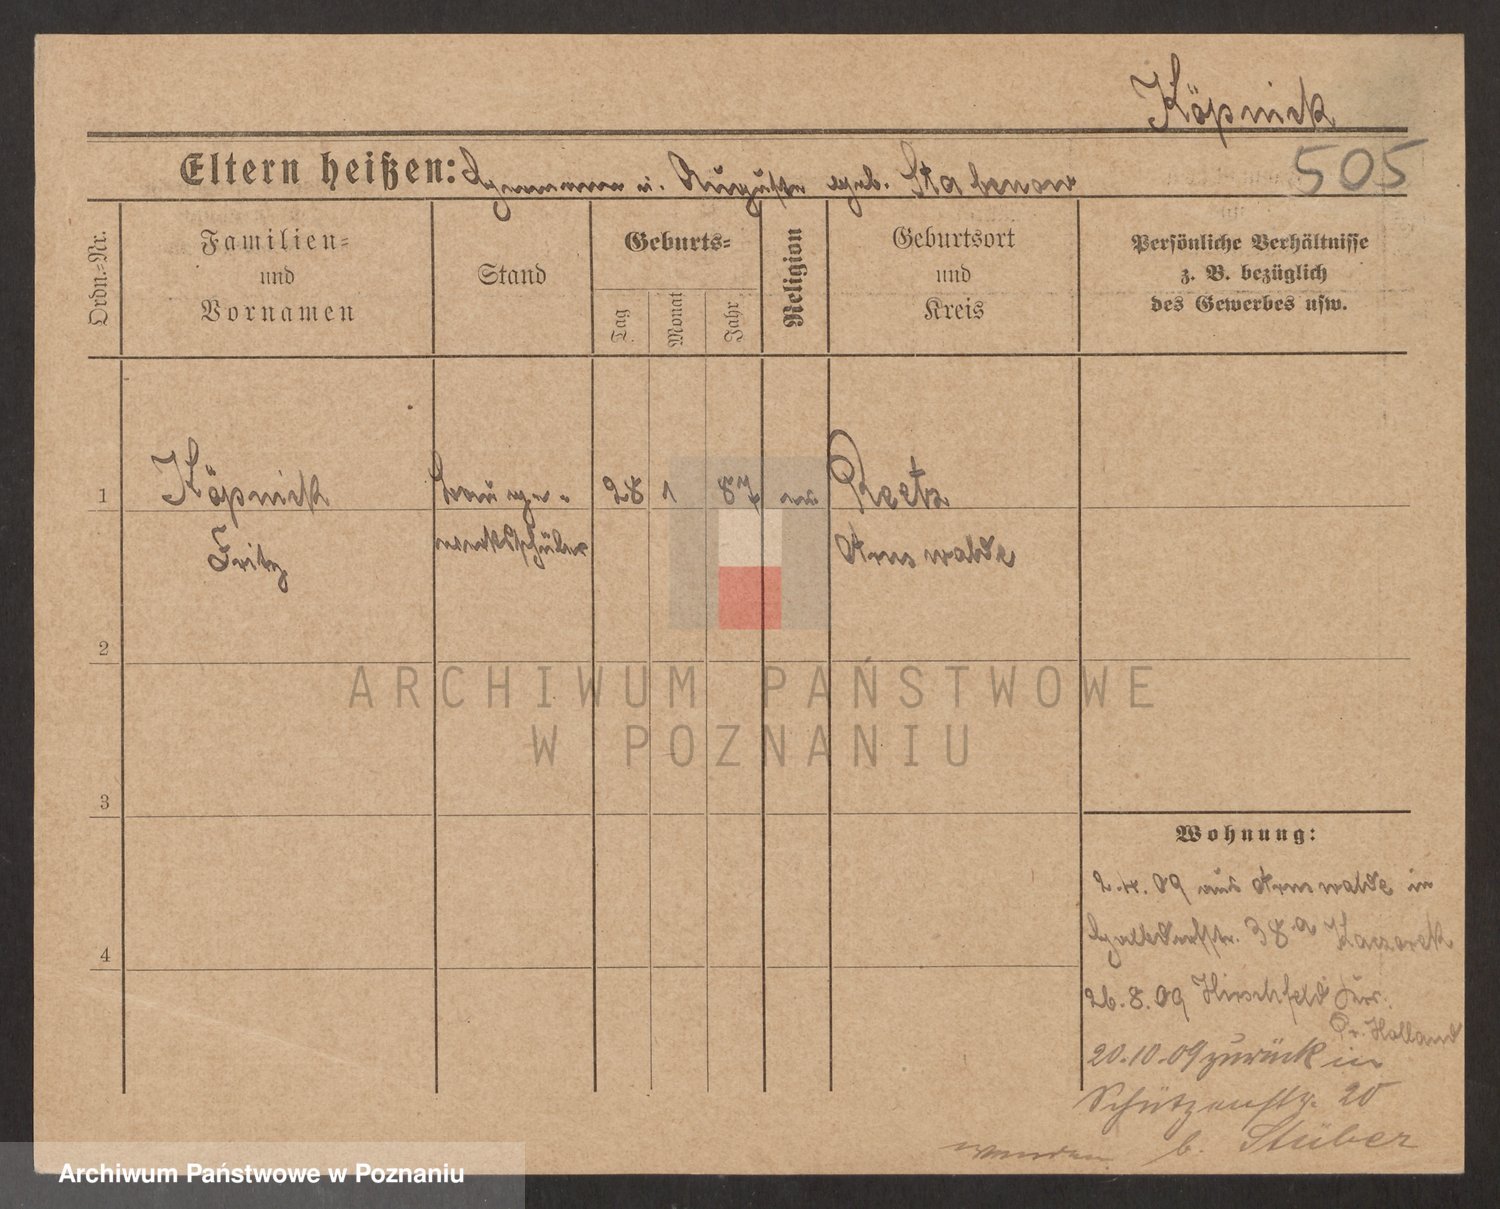 Köpnick
505
Eltern heißen: Hermann u. Auguste geb. Stabenow
Ordn.-Nr.
Familien-
und
Vornamen
Stand
Geburts-
Tag
Monat
Jahr
Religion
Geburtsort
und
Kreis
Persönliche Verhältnisse
z. B. bezüglich
des Gewerbes usw.
1
Köpnick
Fritz
Bauge-
werksschüler
28
1
87
ev
Reetz
Arnswalde
2
3
4
Wohnung:
2.4.09 aus Arnswalde in
38a
26.8.09 Hirschfeld Krs.
Pr. Holland
20.10.09 zurück in
Schützenstr. 20
b. Stüber
ARCHIWUM PAŃSTWOWE
W POZNANIU
Archiwum Państwowe w Poznaniu